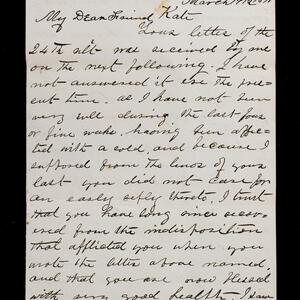 March
My Dear Friend Kate,
Your letter of the
24th ult. was received by me
on the next following. I have
not answered it ere the pres-
ent time, as I have not been
very well during the last four
or five weeks, having been affec-
ted with a cold, and because I
supposed from the lines of your
last you did not care for
an early reply thereto. I trust
that you have long since recov-
ered from the indisposition
that afflicted you when you
wrote the letter above named,
and that you are now blessed
with very good health. I saw